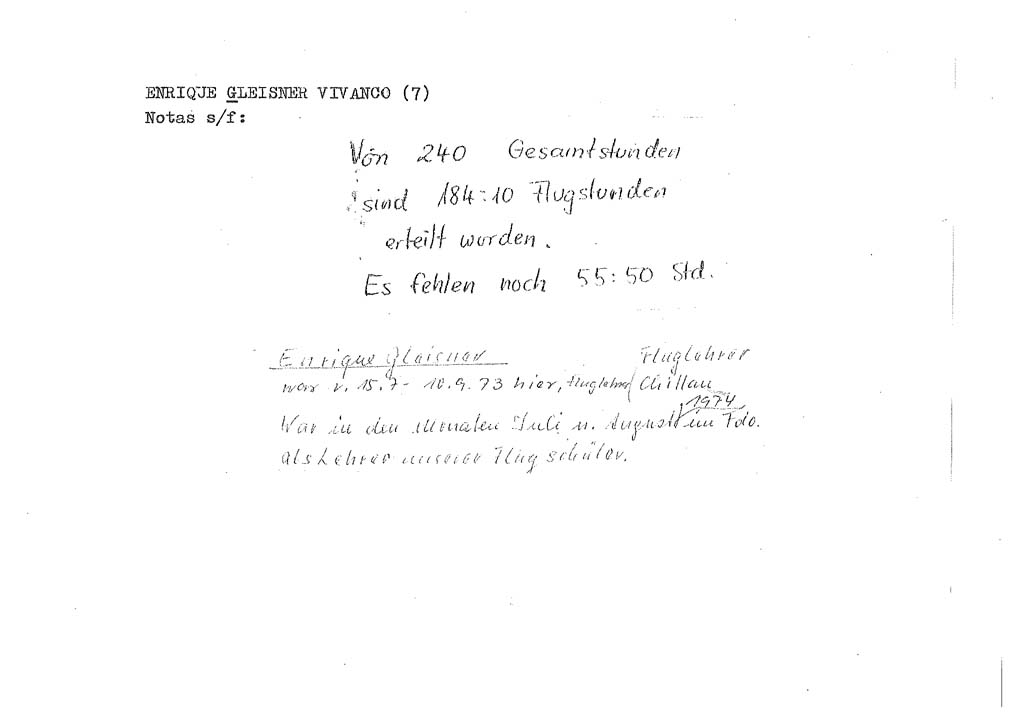 ENRIQUE GLEISNER VIVANCO (7)
Notas s/f:
Von 240 Gesamtstunden
sind 184:10 Flugstunden
erteilt worden.
Es fehlen noch 55:50 Std.
Enrique Gleisner Fluglehrer
war v. 15.7 - 10.9.73 hier, Fluglehrer Chillan
1974
War in den Monaten Juli u. August im Fdo.
als Lehrer unserer Flugschüler.